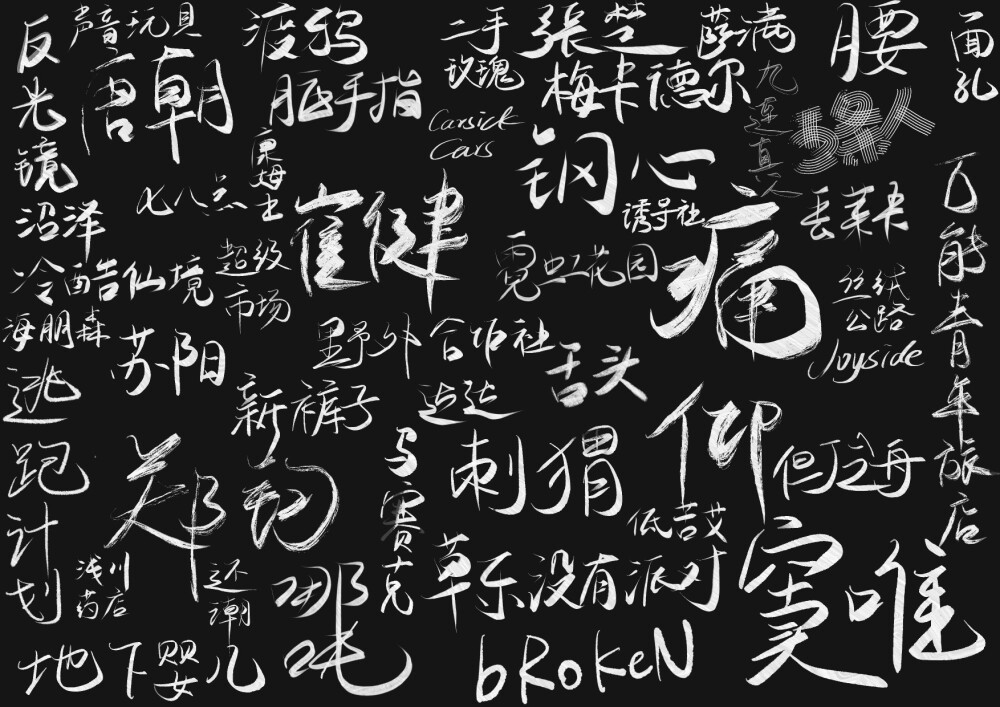 反光镜
声音玩具
渡鸦
二手玫瑰
张楚
薛满
腰
面孔
唐朝
脏手指
梅卡德尔
九连真人
Carsick
Cars
钢心
诱导社
丢莱卡
万能青年旅店
沼泽
七八点
崔健
霓虹花园
痛仰
丝绒公路
Joyside
冷酷仙境
超级市场
海朋森
苏阳
野外合作社
舌头
逃跑计划
新裤子
达达
郑钧
马赛克
刺猬
但丁之海
低苦艾
浅川药店
还潮
哪吒
草东没有派对
窦唯
地下婴儿
BRoKeN